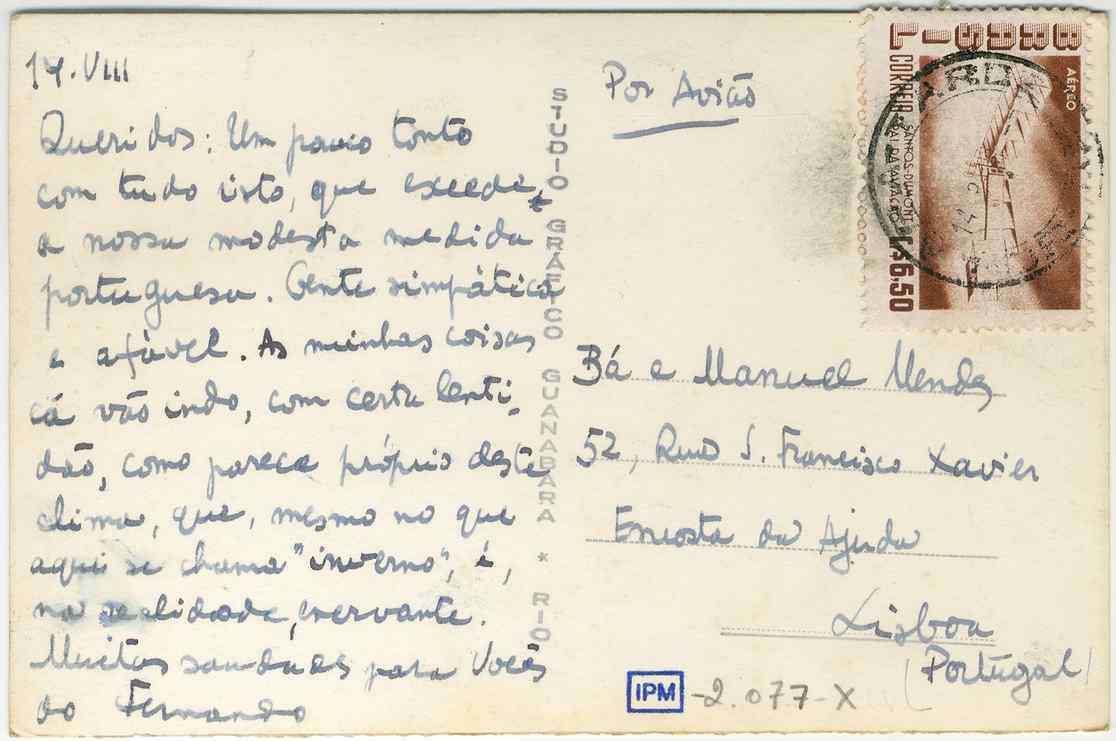 14.VIII
Queridos: Um pouco tonto
com tudo isto, que excede
a nossa modesta medida
portuguesa. Gente simpática
e afável. As minhas coisas
cá vão indo, com certa lenti-
dão, como parece próprio deste
clima, que, mesmo no que
aqui se chama "inverno", é,
na realidade, enervante.
Muitas saudades para Vocês
do Fernando
STUDIO GRÁFICO GUANABARA * RIO
Por Avião
BRASIL
CORREIO
AÉREO
SANTOS-DUMONT
PAI DA AVIAÇÃO
Cr\$6,50
Bá e Manuel Mendes
52, Rua S. Francisco Xavier
Encosta da Ajuda
Lisboa
(Portugal)
IPM -2.077-X